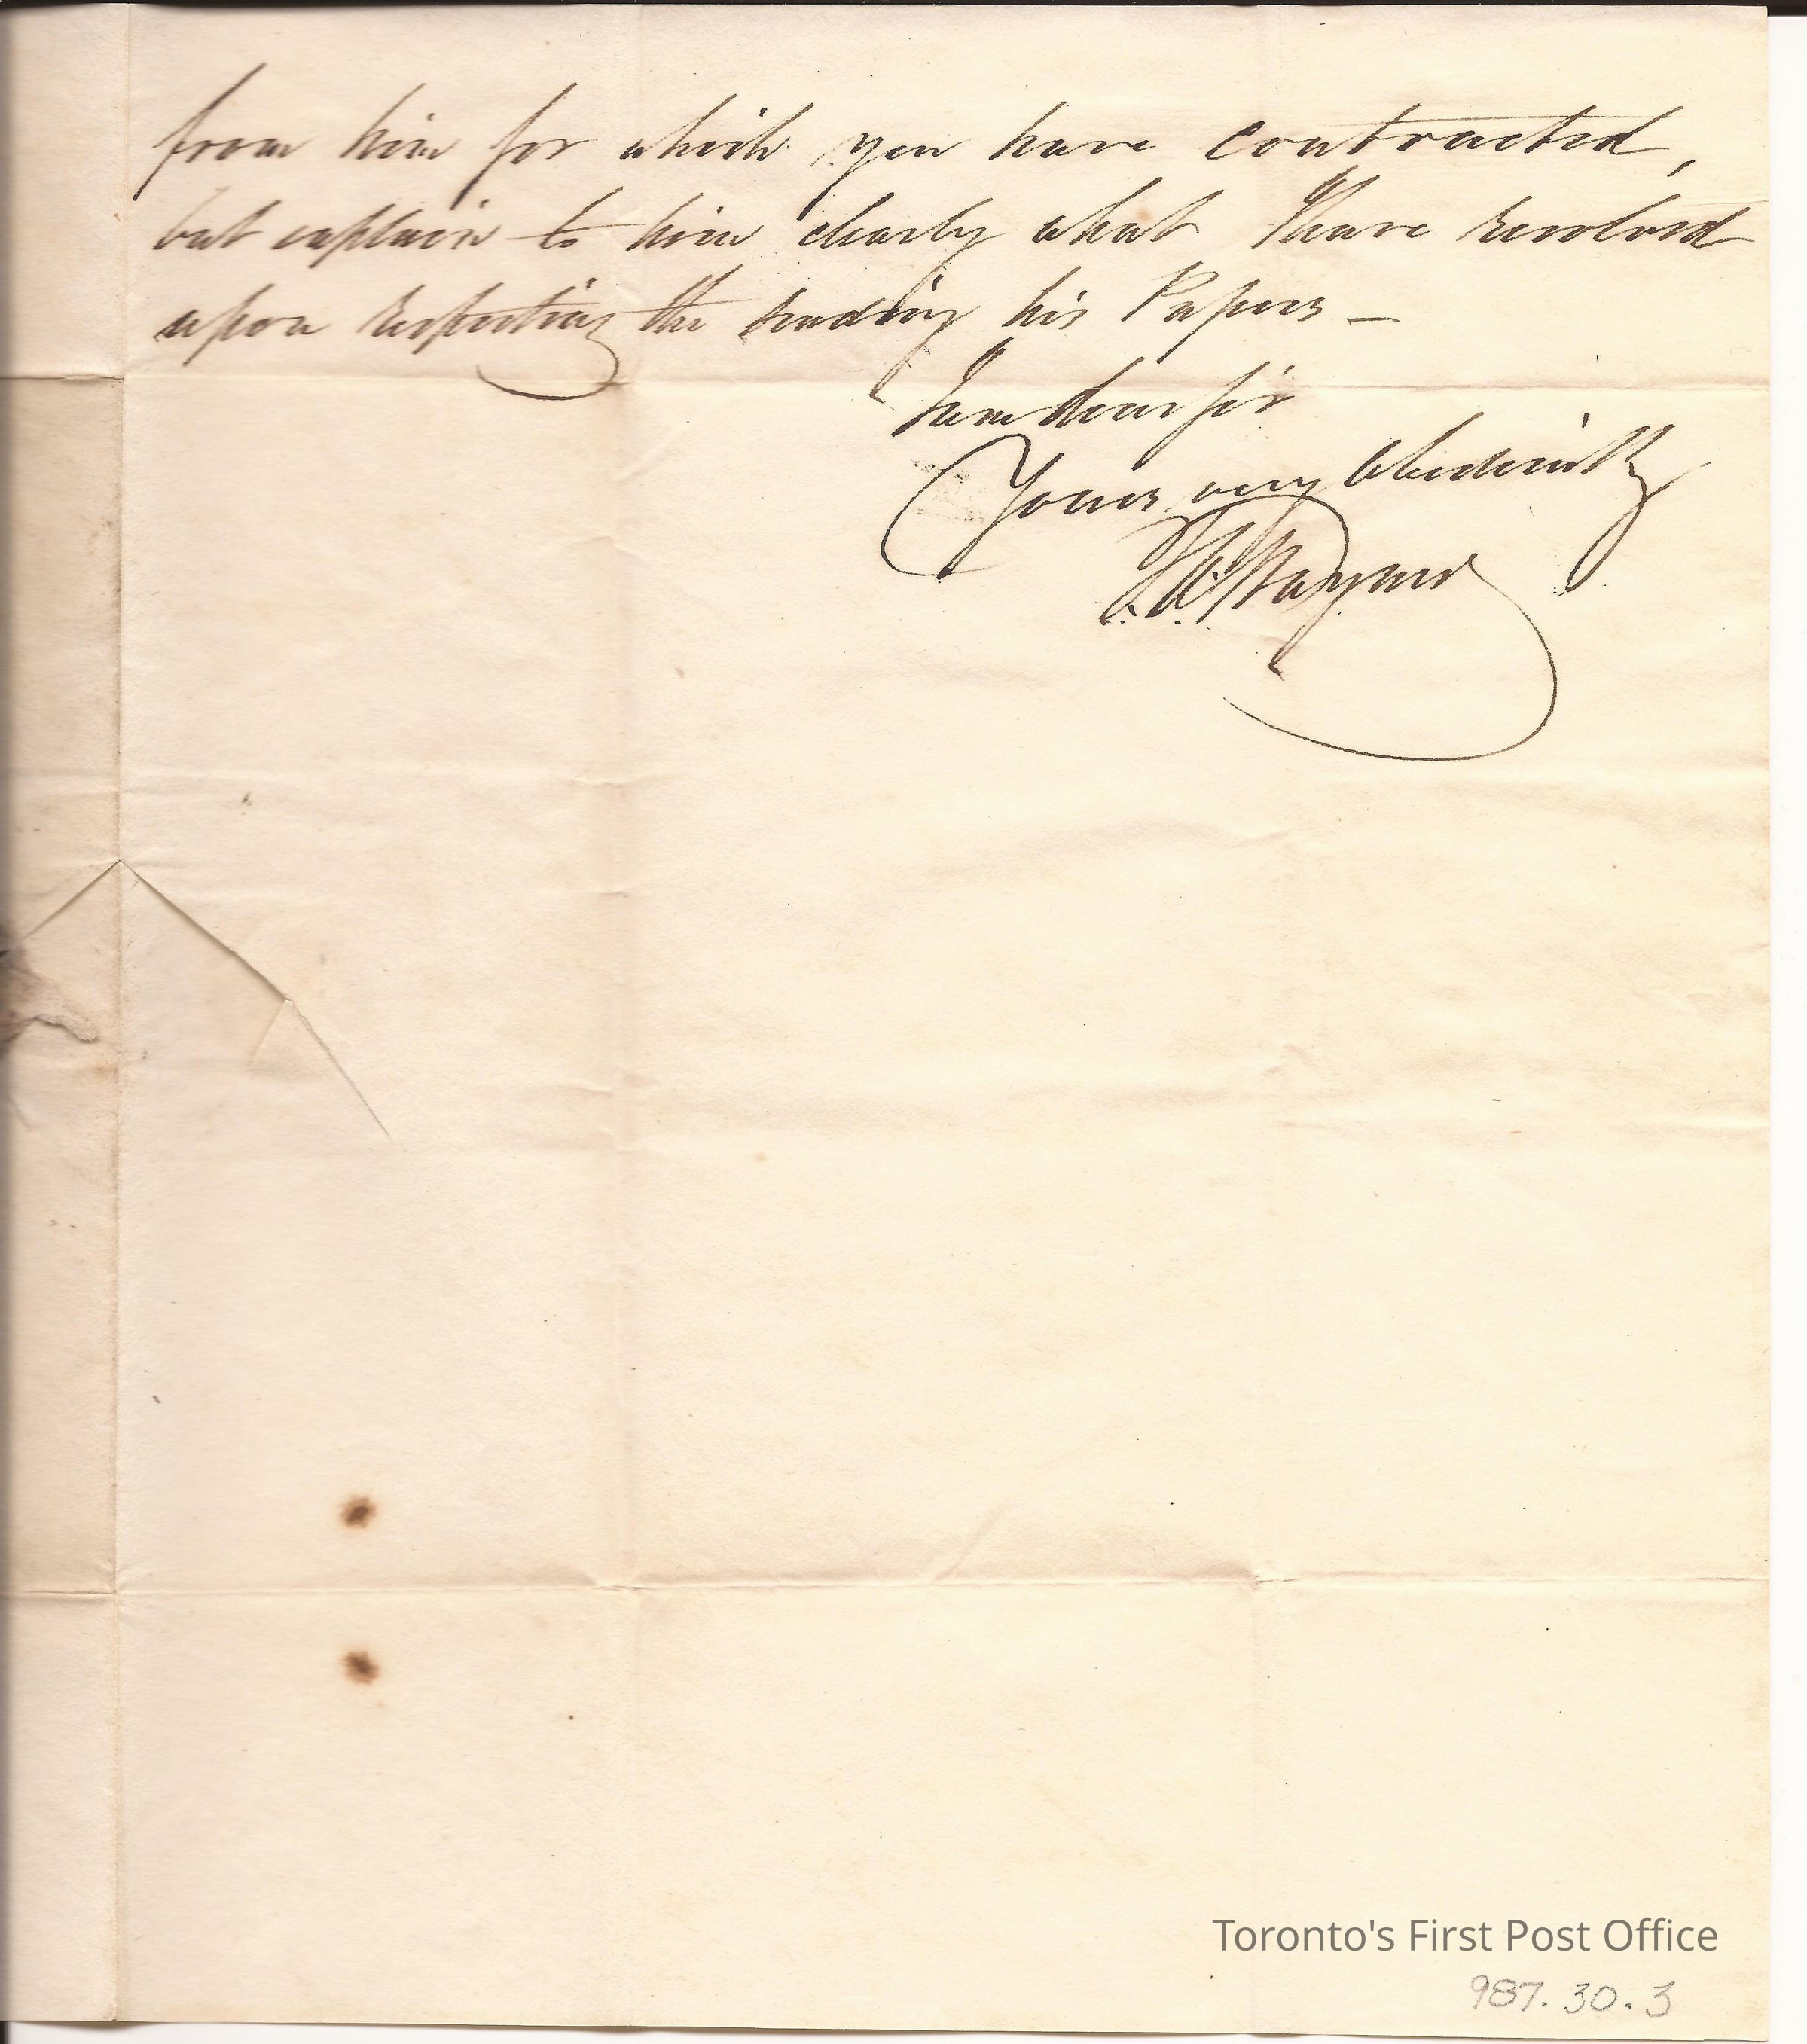 from him for which you have contracted,
but explain to him clearly what I have resolved
upon respecting the sending his Papers —
I am dear sir
Yours very obediently
Toronto's First Post Office
987.30.3